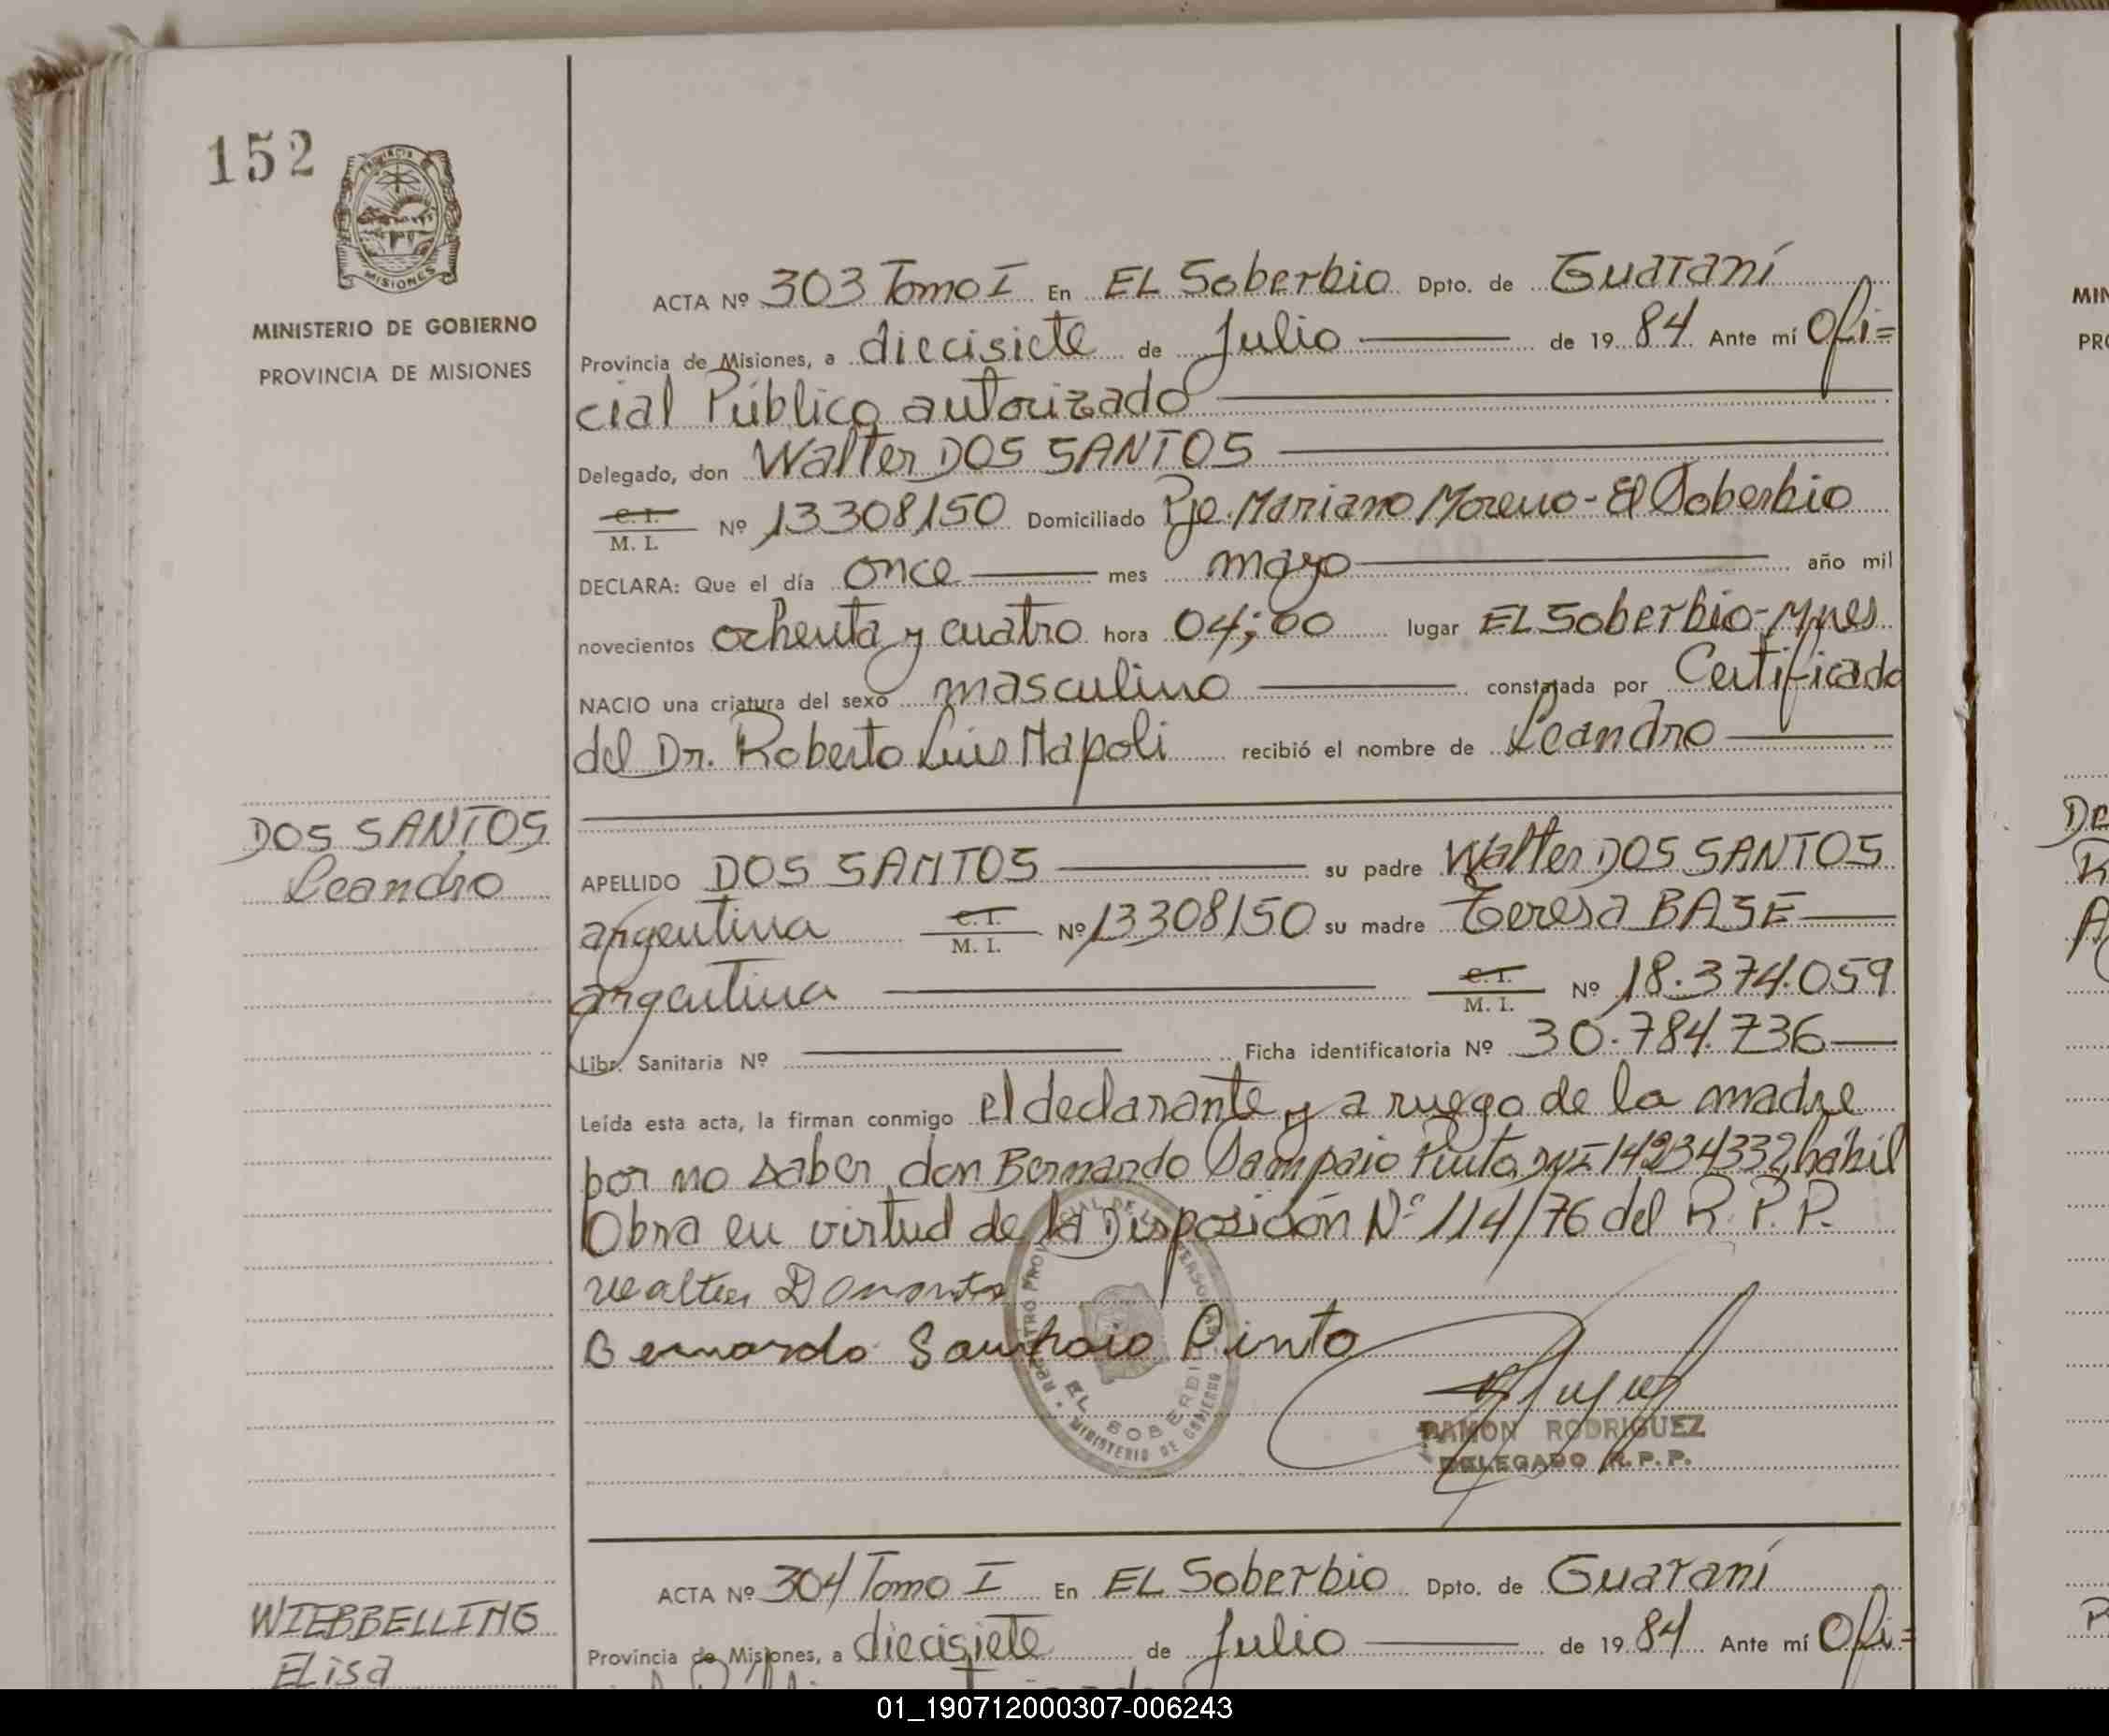 152
PROVINCIA DE
MISIONES
MINISTERIO DE GOBIERNO
PROVINCIA DE MISIONES
ACTA Nº 303 Tomo I En EL Soberbio Dpto. de Guaraní
Provincia de Misiones, a diecisiete de Julio de 1984 Ante mí Ofi=
cial Público autorizado
Delegado, don Walter DOS SANTOS
C. I.
M. I. Nº 13308150 Domiciliado Pje. Mariano Moreno - El Soberbio
DECLARA: Que el día once mes mayo año mil
novecientos ochenta y cuatro hora 04;00 lugar EL Soberbio - Mnes
NACIO una criatura del sexo masculino constatada por Certificado
del Dr. Roberto Luis Napoli recibió el nombre de Leandro
DOS SANTOS
Leandro
APELLIDO DOS SANTOS su padre Walter DOS SANTOS
argentina C. I.
M. I. Nº 13308150 su madre Teresa BASE
argentina C. I.
M. I. Nº 18.374.059
Libr. Sanitaria Nº Ficha identificatoria Nº 30.784.736
Leída esta acta, la firman conmigo el declarante y a ruego de la madre
por no saber don Bernardo Sampaio Pinto DNI 14234332, habil
Obra en virtud de la Disposición Nº 114/76 del R. P. P.
Walter
Bernardo Sampaio Pinto
REGISTRO PROVINCIAL DE LAS PERSONAS
EL SOBERBIO
MINISTERIO DE GOBIERNO
RAMON RODRIGUEZ
DELEGADO R.P.P.
ACTA Nº 304 Tomo I En EL Soberbio Dpto. de Guaraní
Provincia de Misiones, a diecisiete de Julio de 1984 Ante mí Ofi=
WIEBBELLING
Elisa
MIN
PRO
01_190712000307-006243